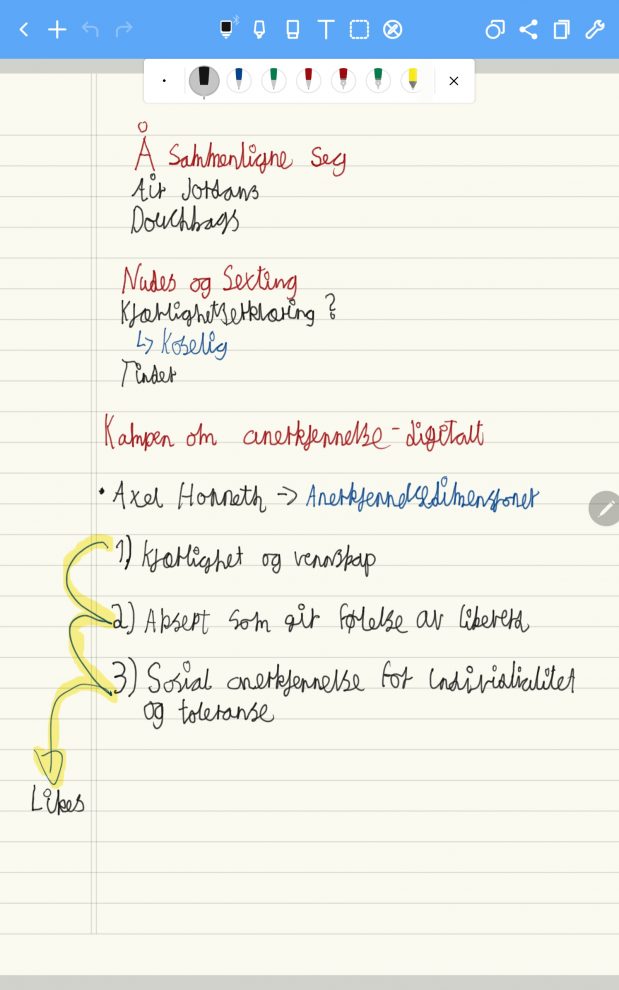 Å Sammenligne seg
Air Jordans
Douchbags
Nudes og Sexting
Kjærlighetserklæring ?
↳ Koselig
Tinder
Kampen om anerkjennelse - digitalt
• Axel Honneth -> Anerkjennelsesdimensjoner
1) Kjærlighet og vennskap
2) Aksept som gir følelse av
3) Sosial anerkjennelse for individialitet
og toleranse
Likes